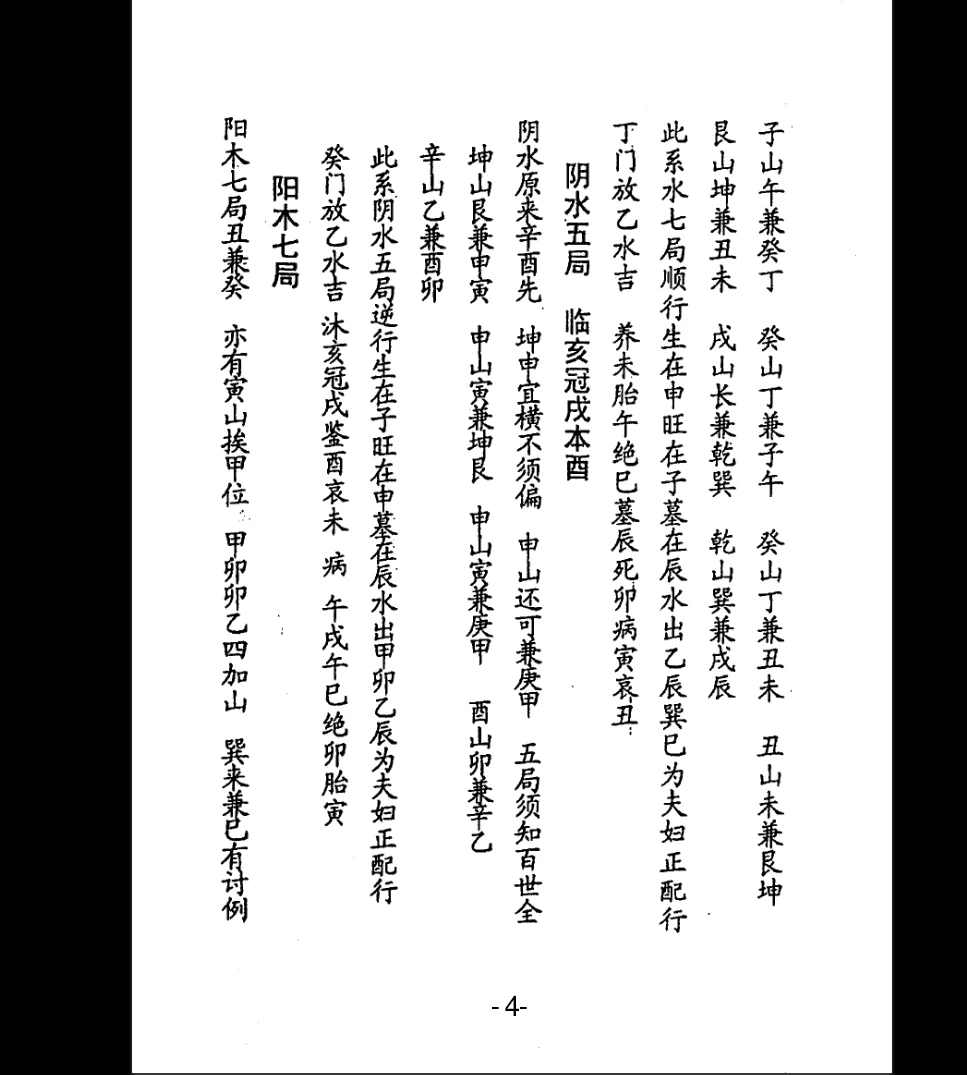 子山午兼癸丁　癸山丁兼子午　癸山丁兼丑未　丑山未兼艮坤
艮山坤兼丑未　戌山长兼乾巽　乾山巽兼戌辰
此系水七局顺行生在申旺在子墓在辰水出乙辰巽巳为夫妇正配行
丁门放乙水吉　养未胎午绝巳墓辰死卯病寅哀丑
阴水五局　临亥冠戌本酉
阴水原来辛酉先　坤申宜横不须偏　申山还可兼庚甲　五局须知百世全
坤山艮兼申寅　申山寅兼坤艮　申山寅兼庚甲　酉山卯兼辛乙
辛山乙兼酉卯
此系阴水五局逆行生在子旺在申墓在辰水出甲卯乙辰为夫妇正配行
癸门放乙水吉　沐亥冠戌鉴酉哀未　病　午戌午巳绝卯胎寅
阳木七局
阳木七局丑兼癸　亦有寅山挨甲位　甲卯卯乙四加山　巽来兼巳有讨例
-4-